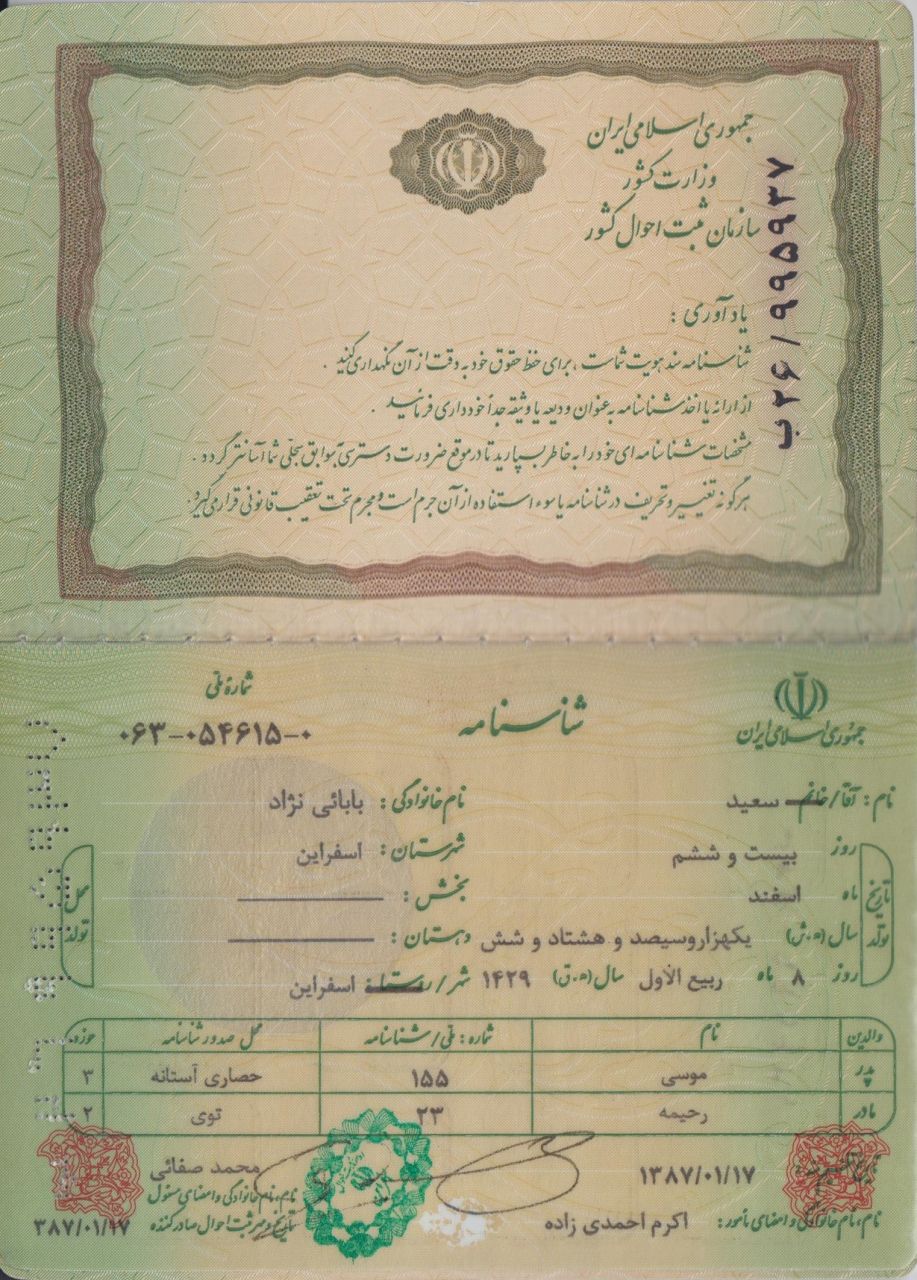 جمهوری اسلامی ایران
وزارت کشور
سازمان ثبت احوال کشور
ب۲۶/۹۹۵۹۳۷
یادآوری :
شناسنامه سند هویت شماست ، برای حفظ حقوق خود به دقت از آن نگهداری کنید .
از ارائه یا اخذ شناسنامه به عنوان ودیعه یا وثیقه جداً خودداری فرمائید .
مشخصات شناسنامه ای خود را به خاطر بسپارید تا در موقع ضرورت دسترسی به سوابق سجلی شما آسانتر گردد .
هر گونه تغییر و تحریف در شناسنامه یا سوء استفاده از آن جرم است و مجرم تحت تعقیب قانونی قرار می گیرد.
جمهوری اسلامی ایران
شناسنامه
شمارۀ ملی
۰۶۳-۰۵۴۶۱۵-۰
نام : آقا/خانم سعید نام خانوادگی : بابائی نژاد
تاریخ تولد
روز بیست و ششم
ماه اسفند
سال (ه.ش) یکهزاروسیصد و هشتاد و شش
روز ۸ ماه ربیع الاول سال (ه.ق) ۱۴۲۹
محل تولد
شهرستان : اسفراین
بخش :
دهستان :
شهر/روستا: اسفراین
والدین نام شماره : ملی/شناسنامه محل صدور شناسنامه حوزه
پدر موسی ۱۵۵ حصاری آستانه ۳
مادر رحیمه ۲۳ توی ۲
۱۳۸۷/۰۱/۱۷
نام، نام خانوادگی و امضای مأمور: اکرم احمدی زاده
محمد صفائی
نام، نام خانوادگی و امضای مسئول
تاریخ و مهر ثبت احوال صادر کننده ۳۸۷/۰۱/۱۷